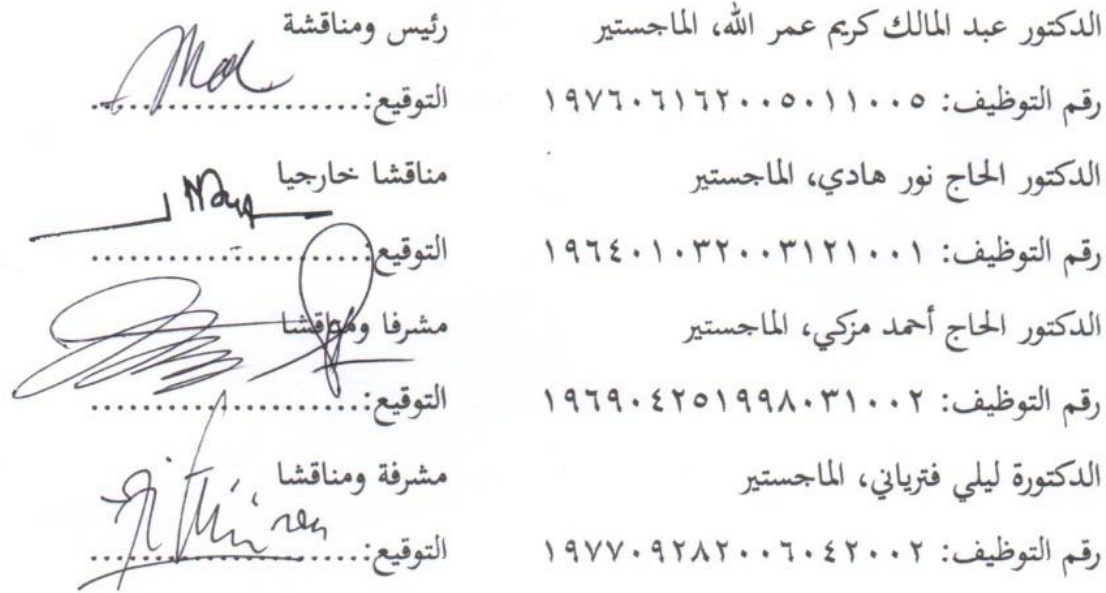 الدكتور عبد المالك كريم عمر الله، الماجستير رئيس ومناقشة
رقم التوظيف: ١٩٧٦٠٦١٦٢٠٠٥٠١١٠٠٥ التوقيع:......................
الدكتور الحاج نور هادي، الماجستير مناقشا خارجيا
رقم التوظيف: ١٩٦٤٠١٠٣٢٠٠٣١٢١٠٠١ التوقيع:......................
الدكتور الحاج أحمد مزكي، الماجستير مشرفا ومناقشا
رقم التوظيف: ١٩٦٩٠٤٢٥١٩٩٨٠٣١٠٠٢ التوقيع:......................
الدكتورة ليلي فترياني، الماجستير مشرفة ومناقشا
رقم التوظيف: ١٩٧٧٠٩٢٨٢٠٠٦٠٤٢٠٠٢ التوقيع:......................